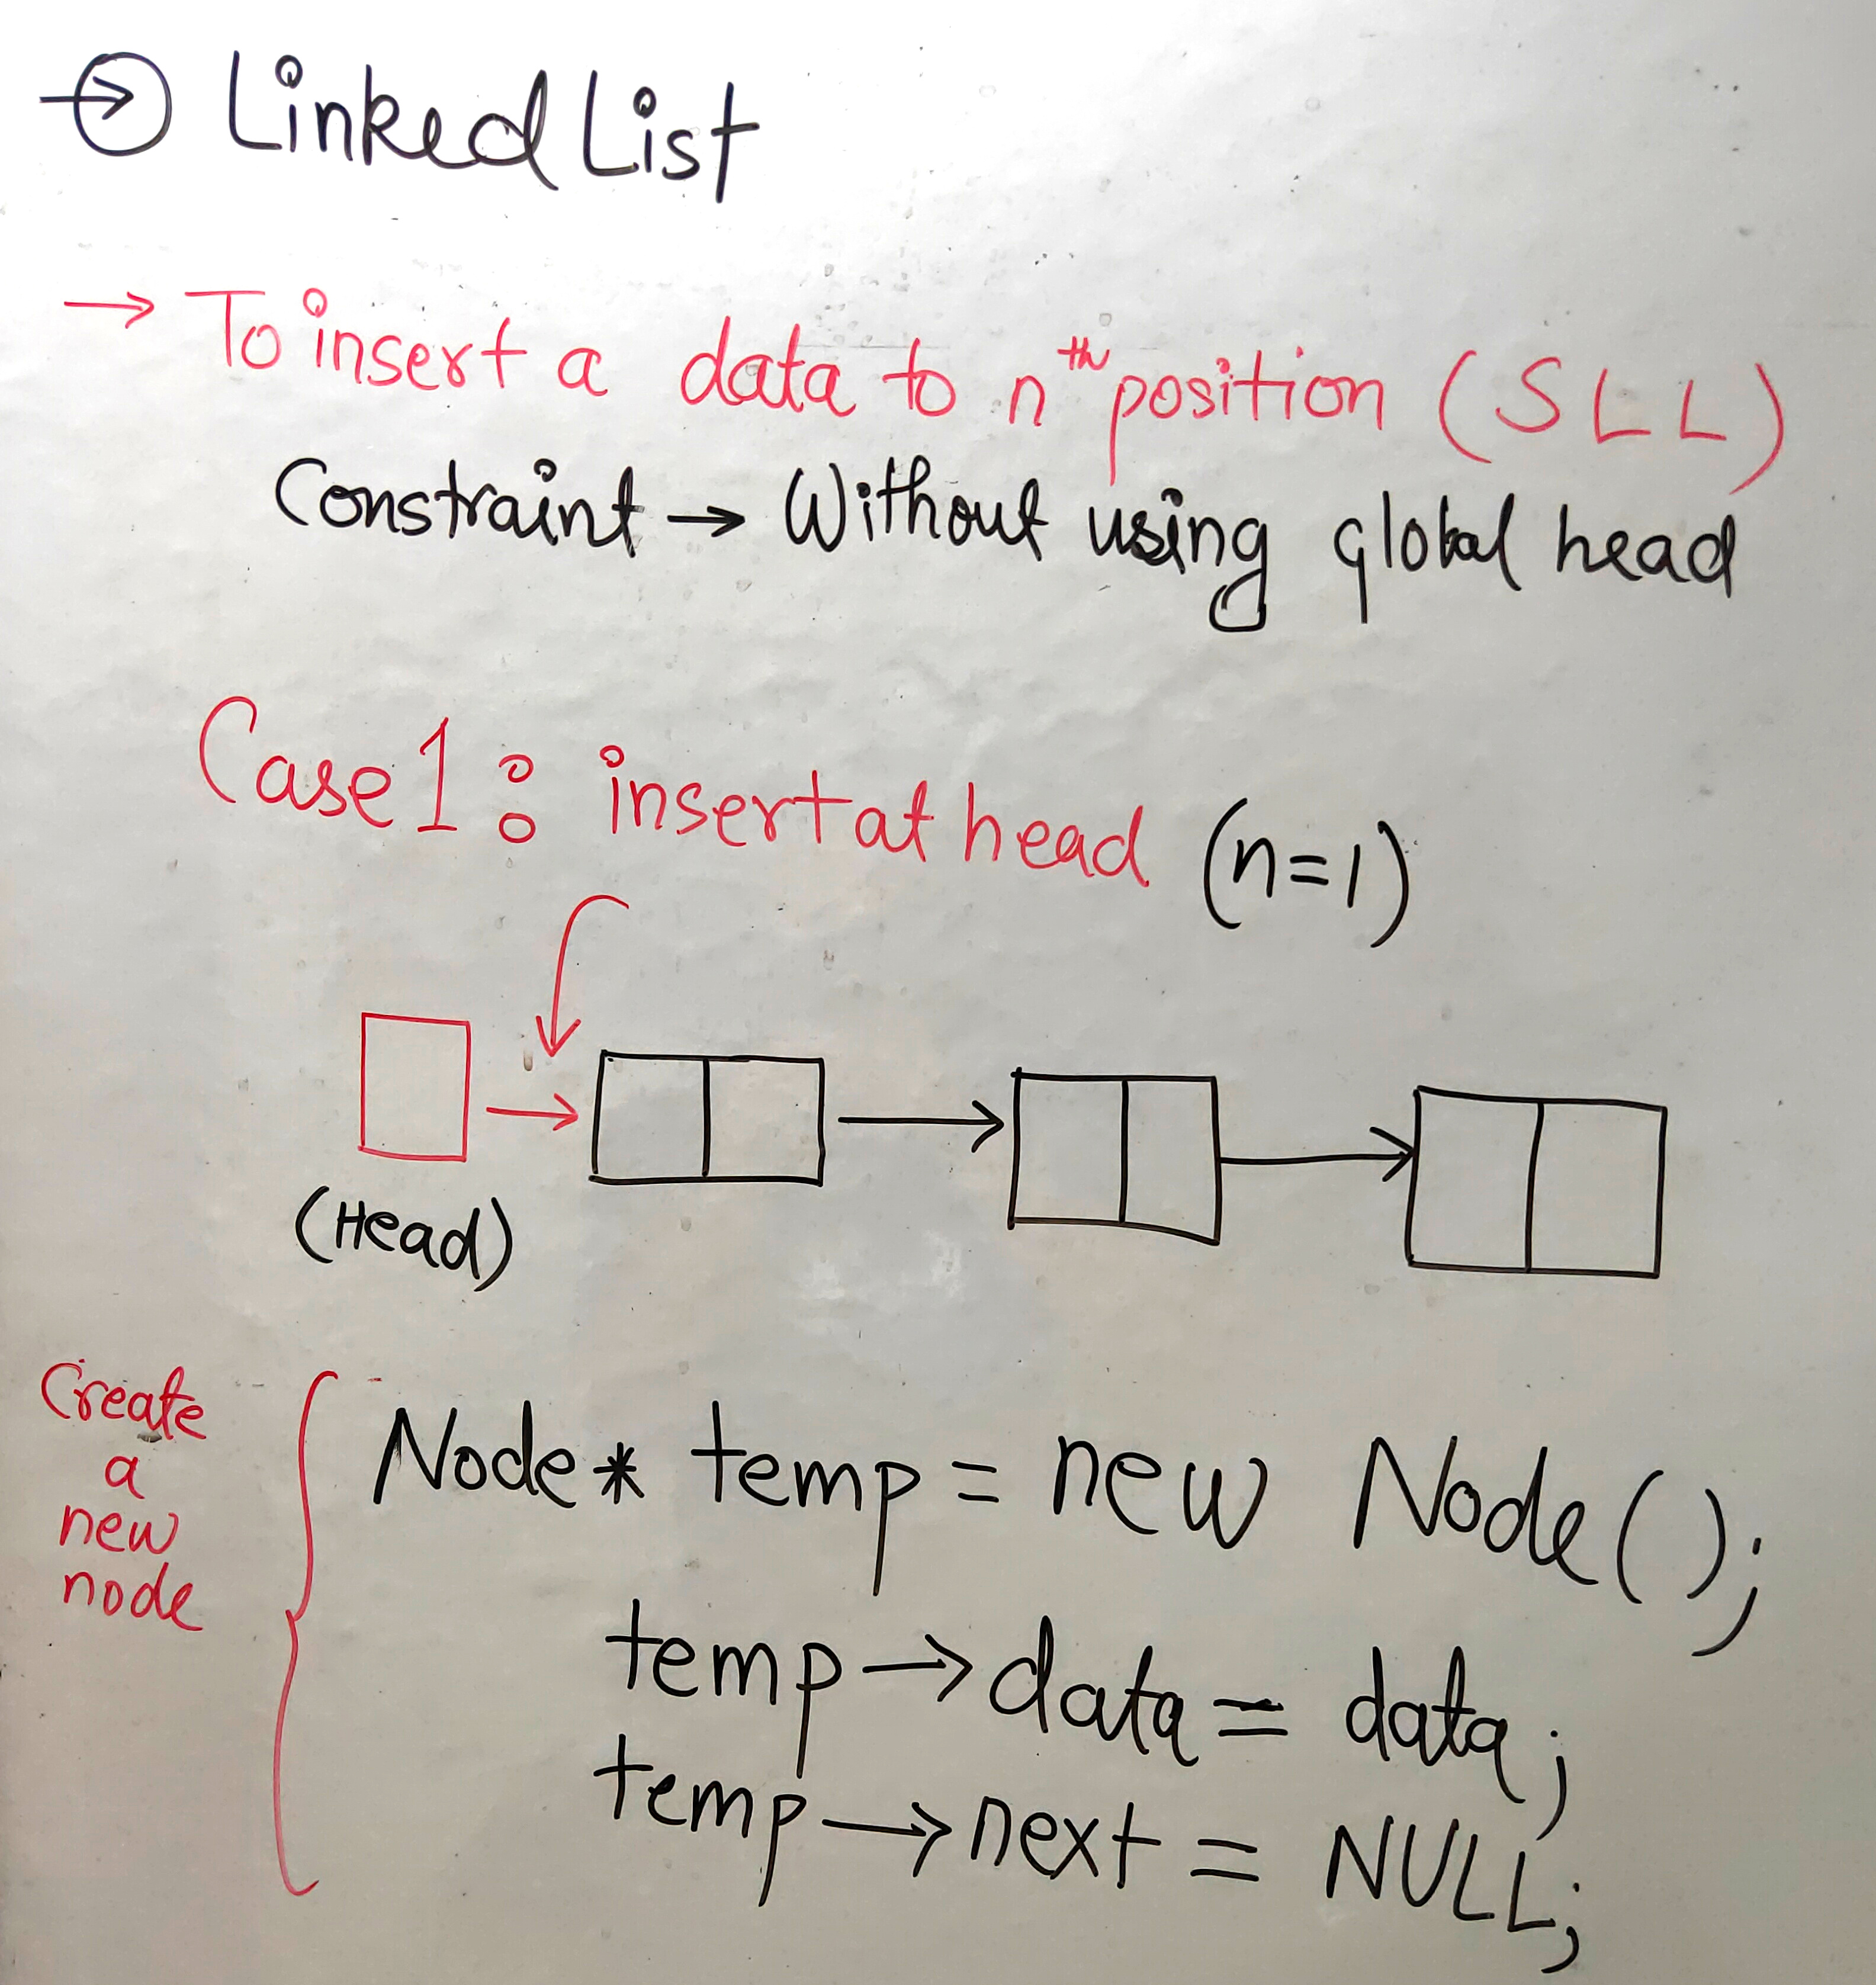 → Linked List
→ To insert a data to nᵗʰ position (SLL)
Constraint → Without using global head
Case 1 : insert at head (n=1)
(Head)
Create
a
new
node
Node* temp = new Node();
temp → data = data;
temp → next = NULL;